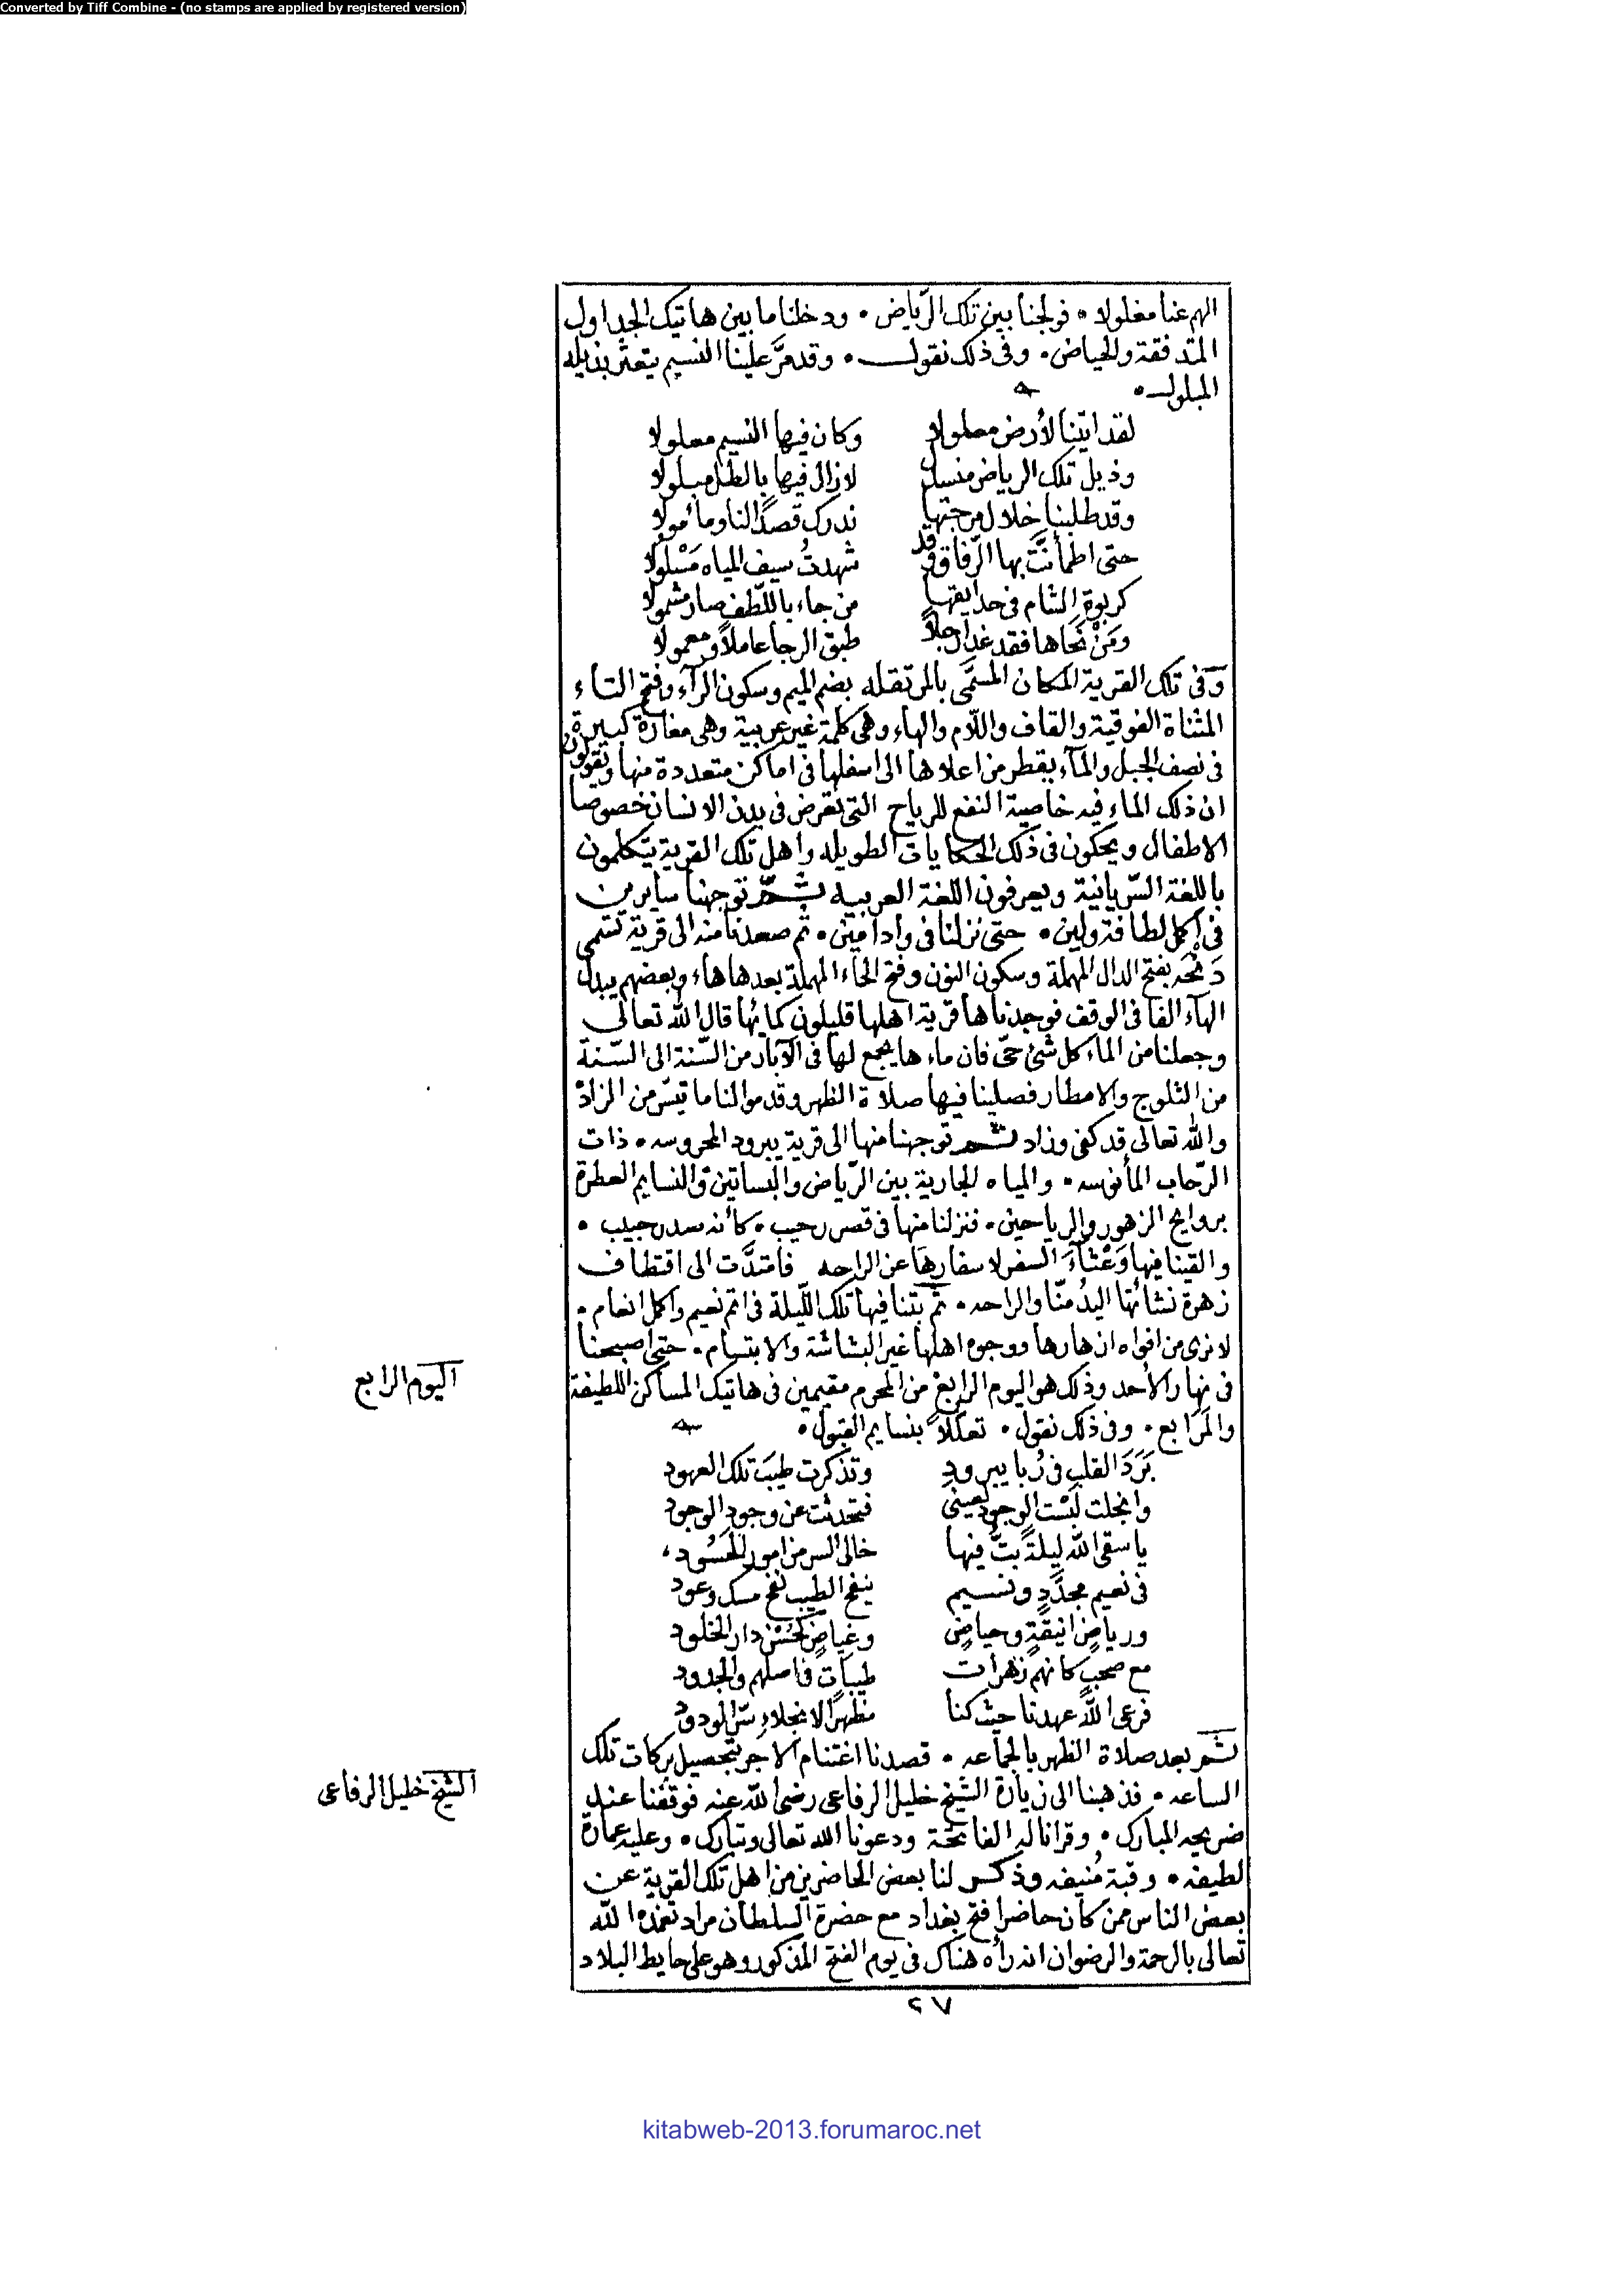 Converted by Tiff Combine - (no stamps are applied by registered version)
الهم عنا مغلولا • فولجنا بين تلك الرّياض • ودخلنا ما بين هاتيك الجداول
المتدفقة والحياض • وفى ذلك نقول • وقد مرّ علينا النسيم يتعثر بذيله
المبلول •
لقد اتينا لأرض معلولا وكان فيها النسيم معلولا
وذيل تلك الرياض منسبل لازال فيها بالطل مبلولا
وقد طلبنا خلال مرجتها ندرك قصدًا لنا ومأمولا
حتى اطمأنّت بها الرّفاق وقد شهدتُ سيف المياه مَسْلولا
كربوة الشام فى حدايقها من جاء باللّطف صار مشمولا
ومَنْ نحاها فقد غدا رجلاً طبق الرجا عاملاً ومعمولا
وفى تلك القرية المكان المسمّى بالمرتقله بضم الميم وسكون الرآء وفتح التاء
المثناة الفوقية والقاف واللّام والهاء وهى كلمة غير عربية وهى مغارة كبيرة
فى نصف الجبل والمآء يقطر من اعلاها الى اسفلها فى اماكن متعددة منها ويقولون
ان ذلك الماء فيه خاصية النفع للرياح التى تعرض فى بدن الانسان خصوصا
الاطفال ويحكون فى ذلك الحكايات الطويله واهل تلك القرية يتكلمون
باللغة السّريانية ويعرفون اللغة العربيه ثمّ توجهنا سايرين
فى اكمل لطافة ولين • حتى نزلنا فى واد امين • ثم صعدنا منه الى قرية تسمى
دَنْحَه بفتح الدال المهملة وسكون النون وفتح الحاء المهملة بعدها هاء وبعضهم يبدل
الهآء الفا فى الوقف فوجدناها قرية اهلها قليلون كمائها قال الله تعالى
وجعلنا من الماء كل شئ حىّ فان ماءها يجمع لها فى الآبار من السّنة الى السّنة
من الثلوج والامطار فصلينا فيها صلاة الظهر وقدموا لنا ما تيسّر من الزاد
والله تعالى قد كفى وزاد ثم توجهنا منها الى قرية يبرود المحروسه • ذات
الرّحاب المأنوسه • والمياه الجارية بين الرّياض والبساتين والنسايم العطرة
بروايح الزهور والرياحين • فنزلنا منها فى قصر رحيب • كأنه صدر حبيب •
والقينا فيها وَعْثآءَ السفر لاسفارها عن الراحه فامتدّت الى اقتطاف
زهرة نشائتها اليدُ منّا والراحه • ثم بتنا فيها تلك اللّيلة فى اتم نعيم واكمل انعام •
لا نرى من افواه ازهارها ووجوه اهلها غير البشاشة والابتسام • حتى اصبحنا
فى نهار الأحد وذلك هو اليوم الرابع من المحرم مقيمين فى هاتيك المساكن اللطيفة
اليوم الرابع
والمَرَابع • وفى ذلك نقول • تعللاً بنسايم القبول •
بَرَدَ القلب فى رُبا يبرودِ وتذكرت طيبَ تلك العهود
وانجلت لبْست الوجود لعينى فتحدثت عن وجود الوجود
يا سقى الله ليلةً بتُّ فيها خالى السر من امور الحَسُود
فى نعيم مجدّدٍ ونسيم ينفح الطيب نفح مسك وعود
ورياضٍ انيقةٍ وحياضٍ وغياضٍ كحُسْن دار الخلود
مع صحبٍ كانهم زهرات طيباتٌ فاصلهم والجدود
فرعى اللهُ عهدنا حيث كنا مظهرًا لانجلاء سرّ الودود
ثم بعد صلاة الظهر بالجماعه • قصدنا اغتنام الاجر بتحصيل بركات تلك
الساعه • فذهبنا الى زيارة الشيخ خليل الرفاعى رضى الله عنه فوقفنا عند
الشيخ خليل الرفاعى
ضريحه المبارك • وقرانا له الفاتحة ودعونا الله تعالى وتبارك • وعليه عمارة
لطيفه • وقبة مُنيفه وذكر لنا بعض الحاضرين من اهل تلك القرية عن
بعض الناس ممن كان حاضرا فتح بغداد مع حضرة السلطان مراد تغمده الله
تعالى بالرحمة والرضوان انه رأه هناك فى يوم الفتح المذكور وهو على حايط البلاد
٢٧
kitabweb-2013.forumaroc.net